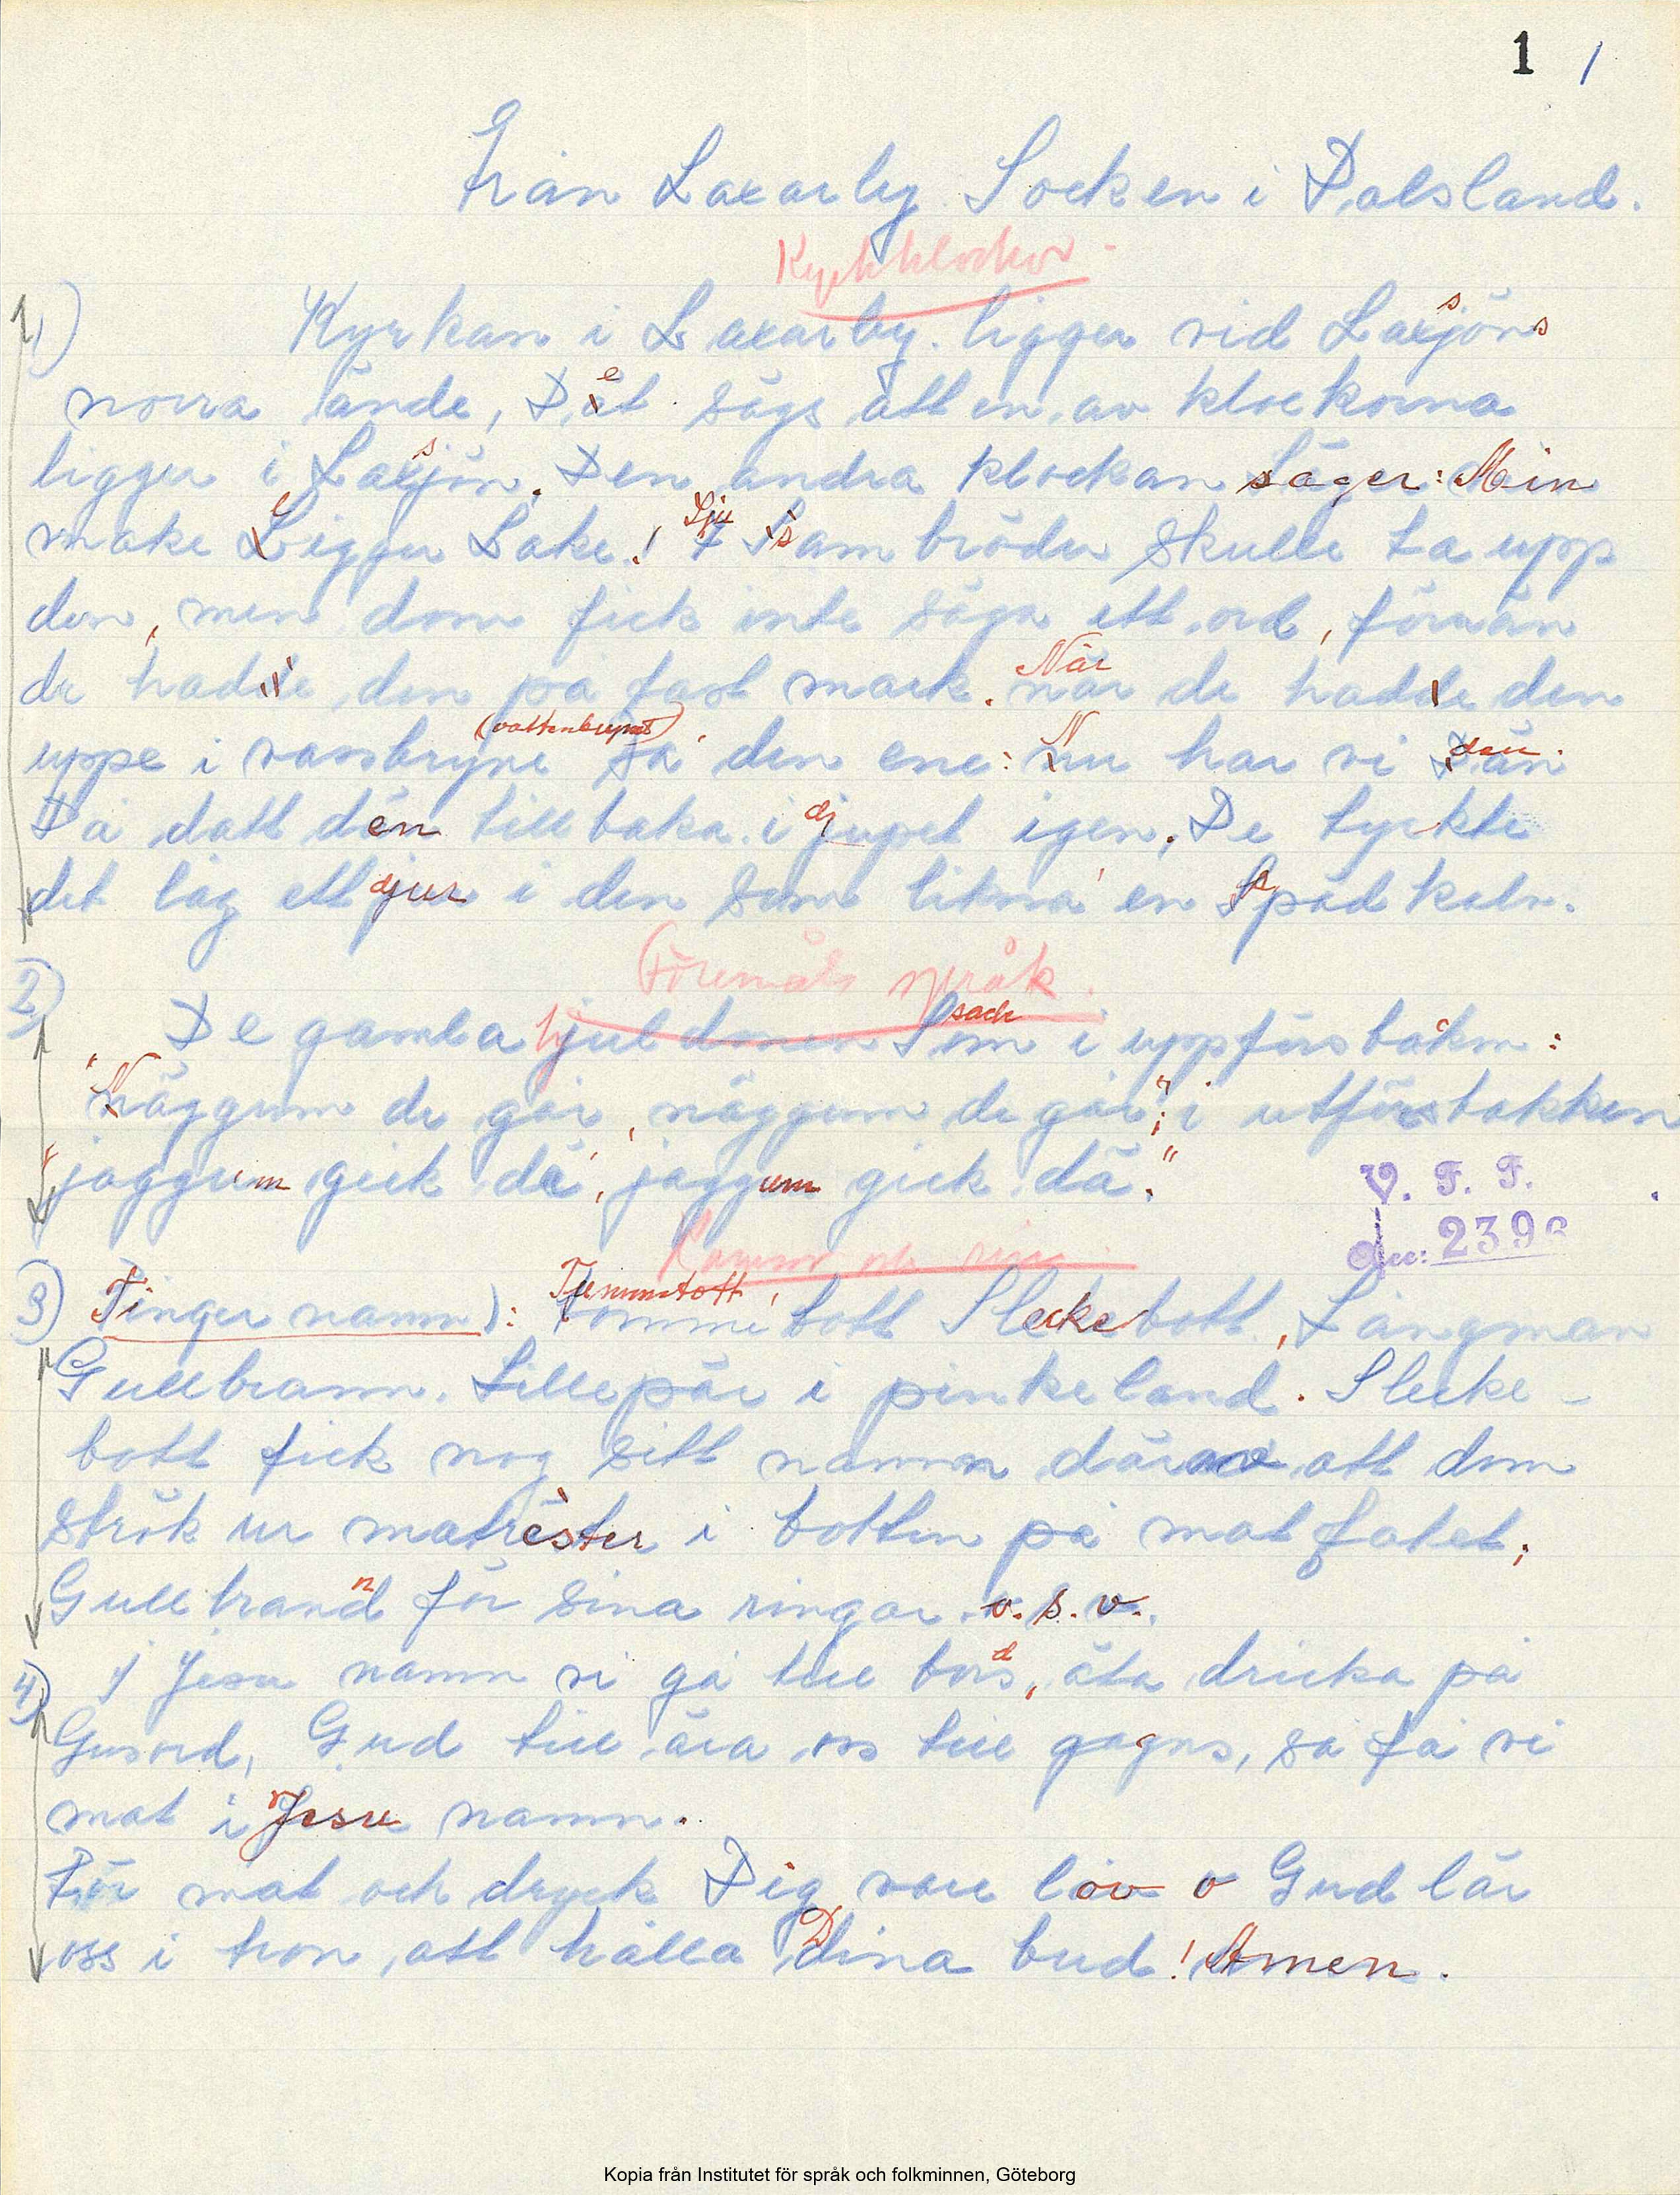 1 /
Från Laxarby Socken i Dalsland.
Kyrkklockor
1) Kyrkan i Laxarby ligger vid Laxsjöns
norra ände, Det sägs att en av klockorna
ligger i Laxsjön. Den andra klockan säger: Min
make ligger Sake! Sju sambröder skulle ta upp
den, men dom fick inte säga ett ord, förrän
de hadde den på fast mark. När de hadde den
uppe i vassbryne (vattenbrynet) sa' den ene: Nu har vi dän
Då datt den tillbaka i djupet igen. De tyckte
det låg ett djur i den som likna' en späd kalv.
2) Föremåls språk.
De gamla hjuldonen sade i uppförsbakkn:
"Näggum de går, näggum de går"; i utförsbakken
"jaggum gick dä', jaggum gick dä."
V. F. F.
2396
Ramsor och rim
3) Finger namn): Tummetott, Sleckebott, Långman
Gullbrann. Lillepär i pinkeland. Slecke-
bott fick nog sitt namn därav att dom
strök ur matrester i botten på matfatet;
Gullbrann för sina ringar o. s. v.
4) I Jesu namn vi gå till bord, äta dricka på
Gusord, Gud till ära oss till gagns, så få vi
mat i Jesu namn.
För mat och dryck Dig vare lov o Gud lär
oss i tron att hålla Dina bud! Amen.
Kopia från Institutet för språk och folkminnen, Göteborg